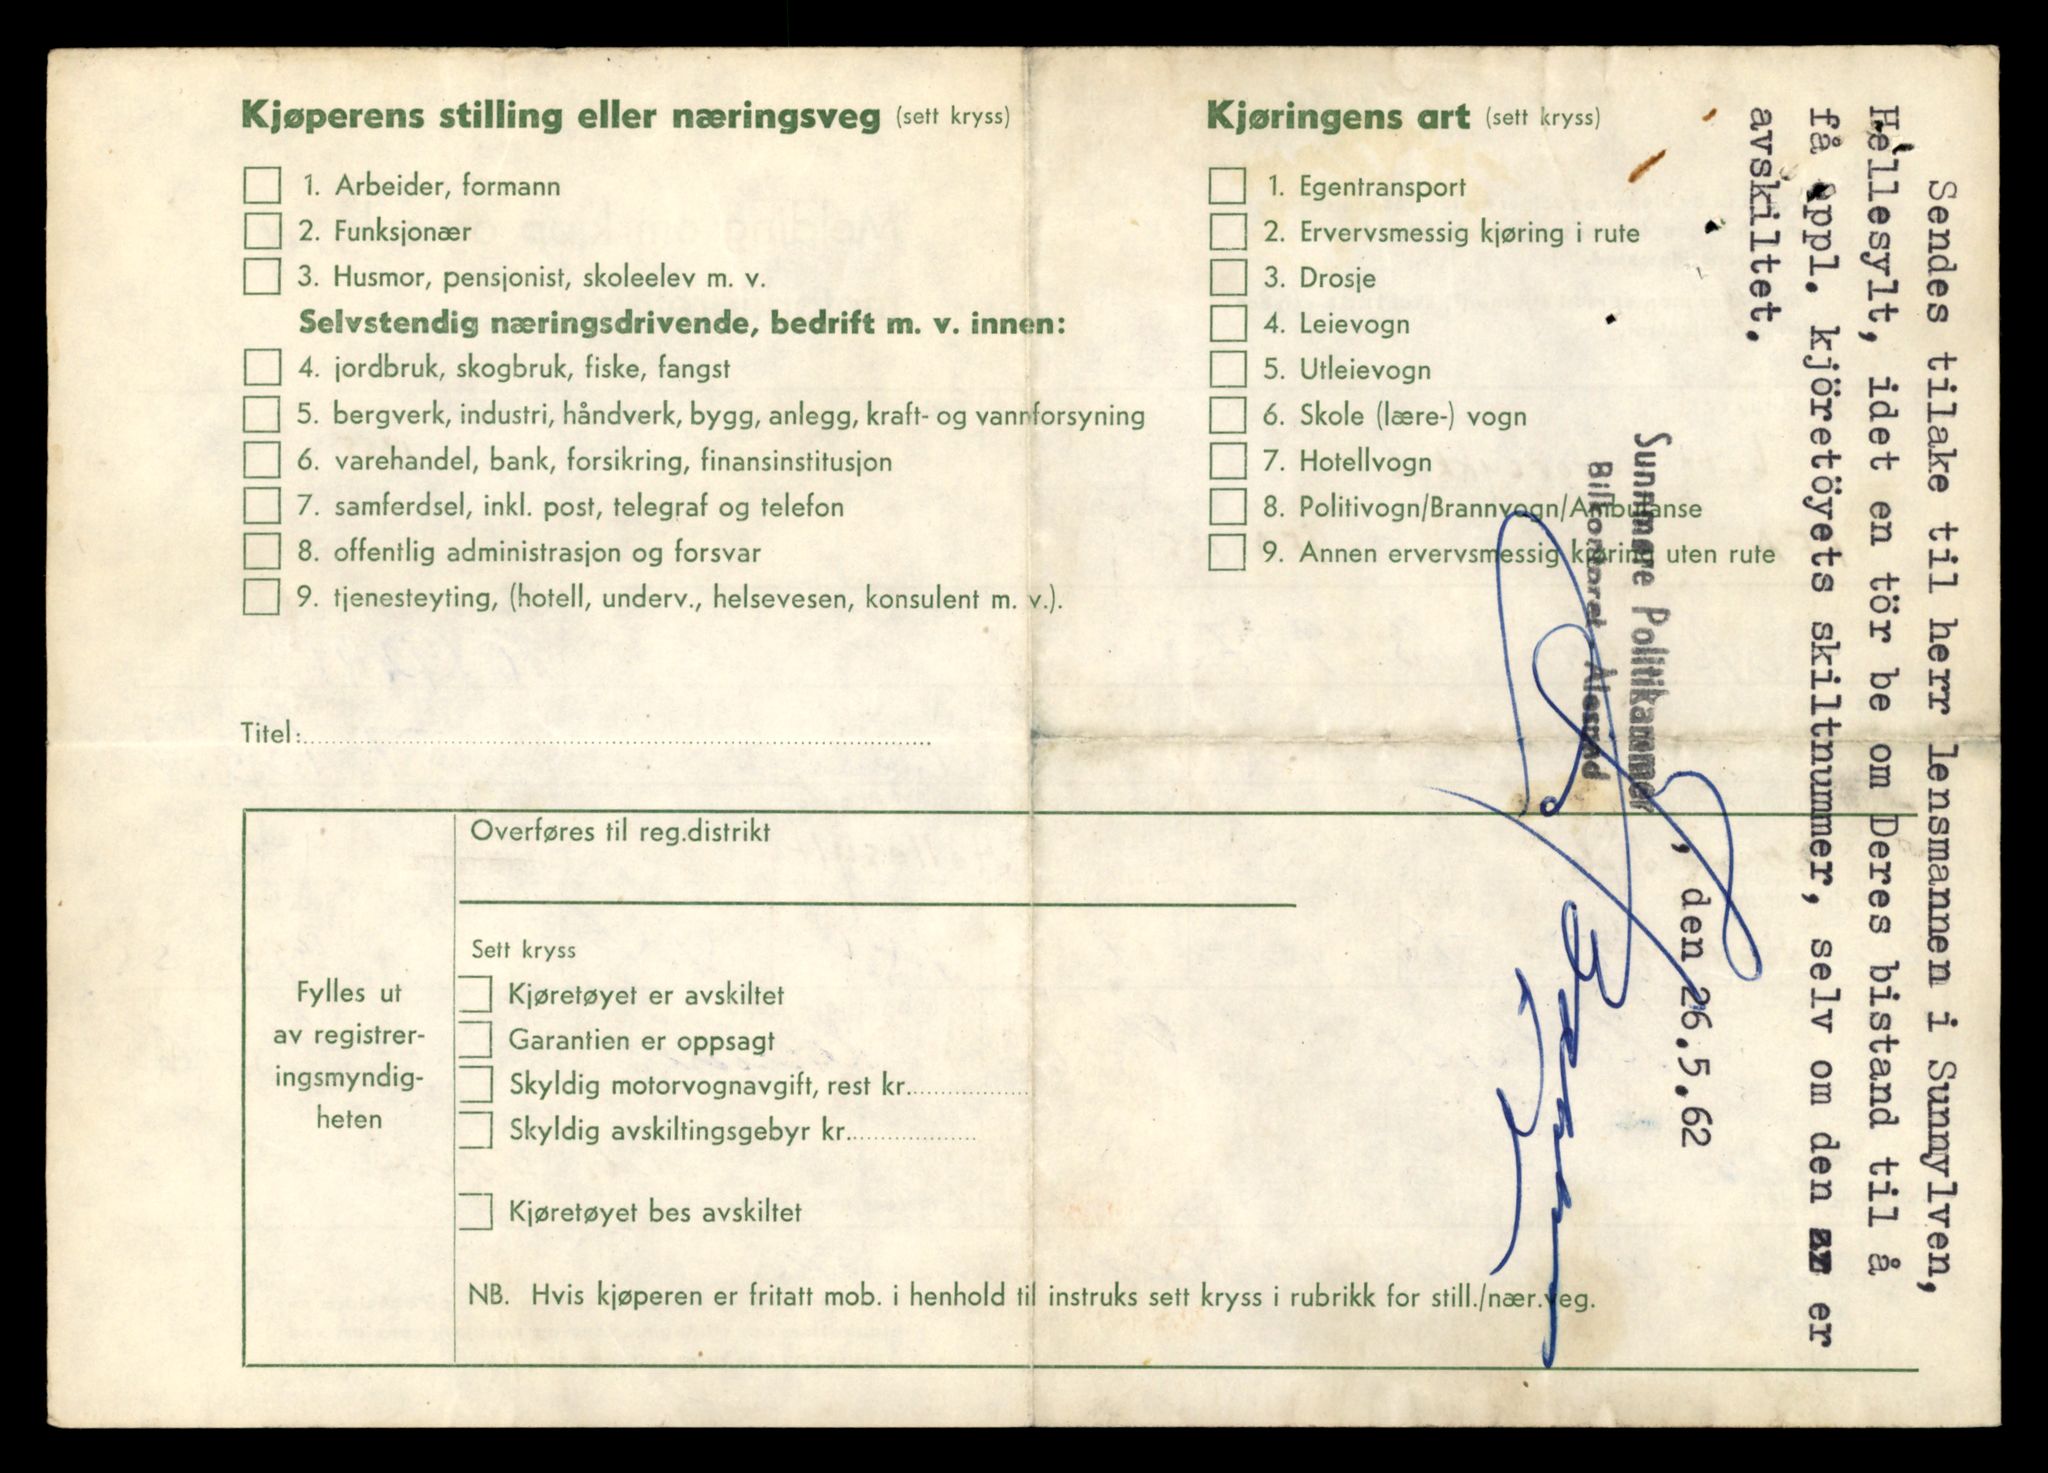 Kjøperens stilling eller næringsveg (sett kryss)
1. Arbeider, formann
2. Funksjonær
3. Husmor, pensjonist, skoleelev m. v.
Selvstendig næringsdrivende, bedrift m. v. innen:
4. jordbruk, skogbruk, fiske, fangst
5. bergverk, industri, håndverk, bygg, anlegg, kraft- og vannforsyning
6. varehandel, bank, forsikring, finansinstitusjon
7. samferdsel, inkl. post, telegraf og telefon
8. offentlig administrasjon og forsvar
9. tjenesteyting, (hotell, underv., helsevesen, konsulent m. v.).
Titel:
Kjøringens art (sett kryss)
1. Egentransport
2. Ervervsmessig kjøring i rute
3. Drosje
4. Leievogn
5. Utleievogn
6. Skole (lære-) vogn
7. Hotellvogn
8. Politivogn/Brannvogn/Ambulanse
9. Annen ervervsmessig kjøring uten rute
Fylles ut
av registrer-
ingsmyndig-
heten
Overføres til reg.distrikt
Sett kryss
Kjøretøyet er avskiltet
Garantien er oppsagt
Skyldig motorvognavgift, rest kr.
Skyldig avskiltingsgebyr kr.
Kjøretøyet bes avskiltet
NB. Hvis kjøperen er fritatt mob. i henhold til instruks sett kryss i rubrikk for still./nær.veg.
Sendes tilake til herr lensmannen i Sunnylven,
Hellesylt, idet en tör be om Deres bistand til å
få oppl. kjöretöyets skiltnummer, selv om den er
avskiltet.
, den 26.5.62
Sunnmøre Politikammer
Bilkontoret Ålesund